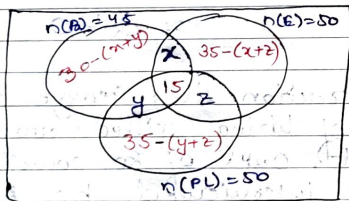 n(B) = 45
n(E) = 50
30-(x+y)
x
35-(x+z)
15
y
z
35-(y+z)
n(PL) = 50